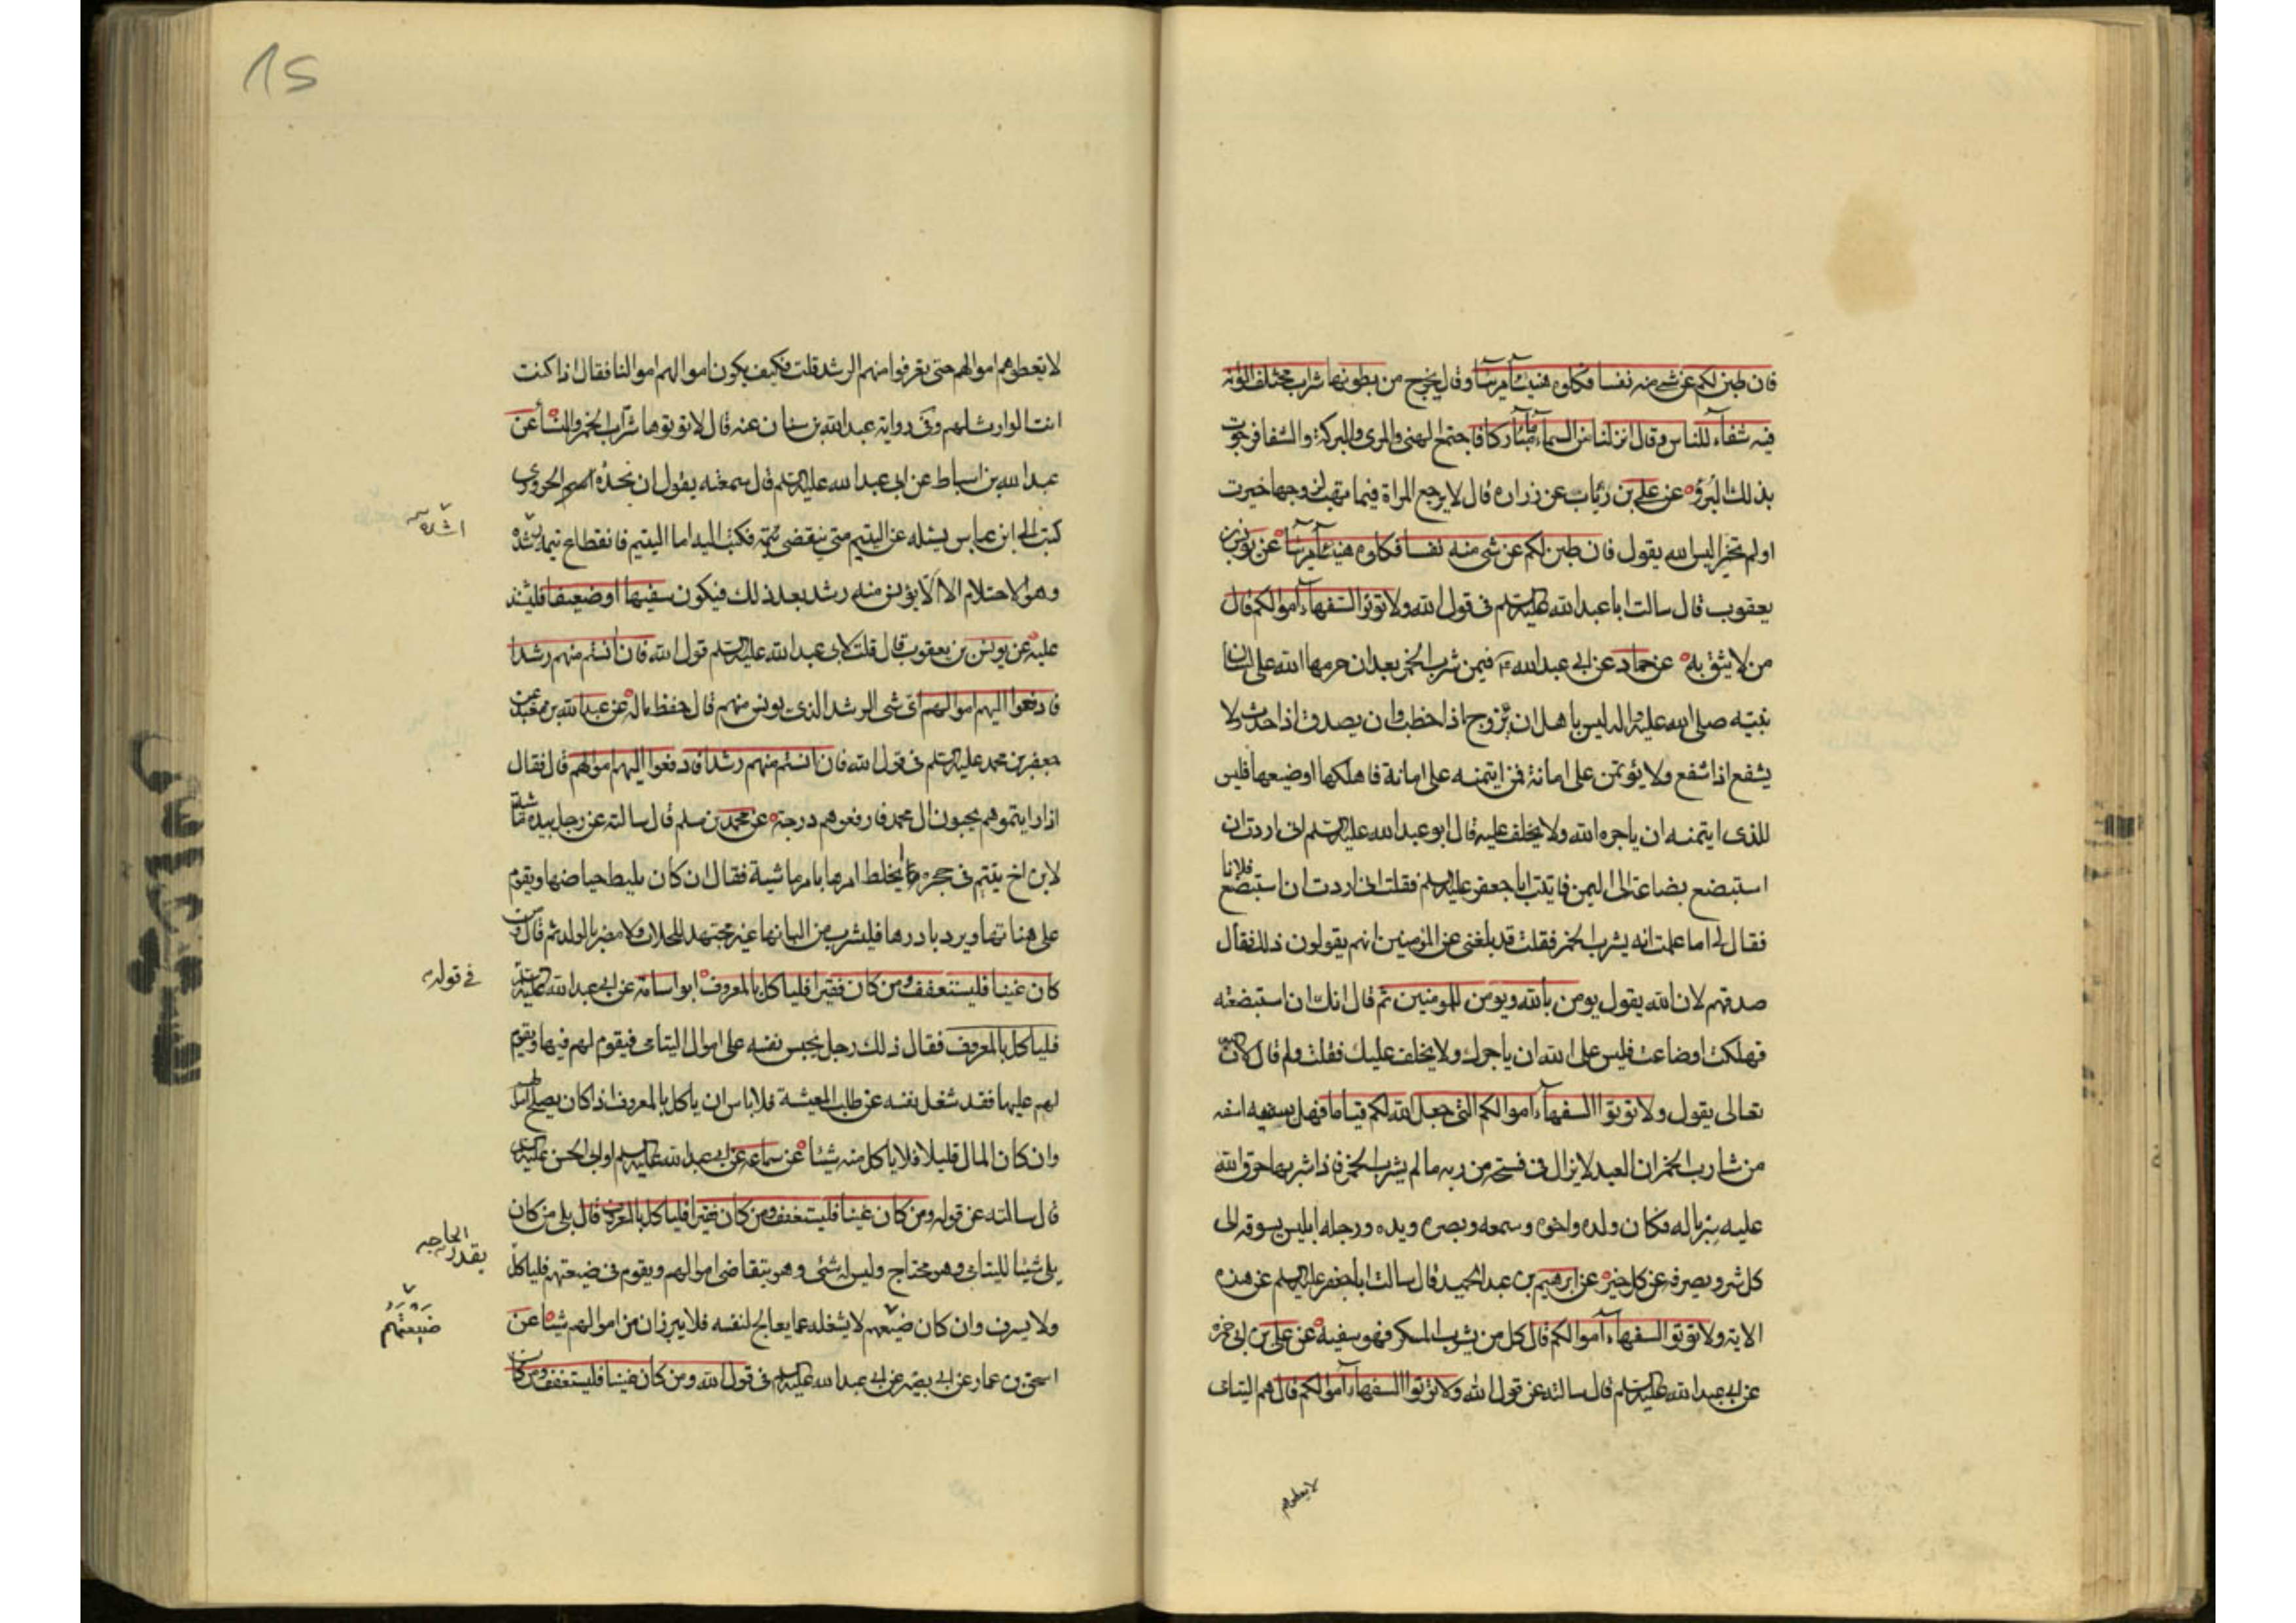 فان طبن لكم عن شئ منه نفسا فكلوه هنيئا مريئا وقال يخرج من بطونها شراب مختلف الوانه
فيه شفاء للناس وقال انزلنا من السماء ماء مباركا فاجتمع الهنئ والمرئ والبركة والشفا فرجوت
بذلك البرؤ عن علي بن رئاب عن زراره قال لا يرجع المراة فيما تهب لزوجها خيرت
اولم تخير اليس الله يقول فان طبن لكم عن شئ منه نفسا فكلوه هنيئا مريئا عن يونس بن
يعقوب قال سالت ابا عبد الله عليه السلم في قول الله ولا توتوا السفهاء اموالكم قال
من لا يثق به عن حماد عن ابي عبد الله فيمن شرب الخمر بعد ان حرمها الله على لسان
نبيه صلى الله عليه واله ليس باهل ان يزوج اذا خطب وان يصدق اذا حدث ولا
يشفع اذا شفع ولا يؤتمن على امانة فمن ايتمنه على امانة فاهلكها او ضيعها فليس
للذي ايتمنه ان ياجره الله ولا يخلف عليه قال ابو عبد الله عليه السلم اني اردت ان
استبضع بضاعة الى اليمن فاتيت ابا جعفر عليه السلم فقلت اني اردت ان استبضع فلانا
فقال لي اما علمت انه يشرب الخمر فقلت قد بلغني عن المؤمنين انهم يقولون ذلك فقال
صدقهم لان الله يقول يومن بالله ويومن للمومنين ثم قال انك ان استبضعته
فهلكت او ضاعت فليس على الله ان ياجرك ولا يخلف عليك فقلت ولم قال لان الله
تعالى يقول ولا توتوا السفهاء اموالكم التي جعل الله لكم قياما فهل سفيه اسفه
من شارب الخمر ان العبد لا يزال في فسحة من ربه ما لم يشرب الخمر فاذا شربها خرق الله
عليه سرباله فكان ولده واخوه وسمعه وبصره ويده ورجله ابليس يسوقه الى
كل شر ويصرفه عن كل خير عن ابرهيم بن عبد الحميد قال سالت ابا جعفر عليه السلم عن هذه
الاية ولا توتوا السفهاء اموالكم قال كل من يشرب المسكر فهو سفيه عن علي بن ابي حمزه
عن ابي عبد الله عليه السلم قال سالته عن قول الله ولا توتوا السفهاء اموالكم قال هم اليتامى
لا تعطوهم
لا تعطوهم اموالهم حتى تعرفوا منهم الرشد قلت فكيف يكون اموالهم اموالنا فقال اذا كنت
انت الوارث لهم وفى رواية عبد الله بن سنان عنه قال لا توتوها شراب الخمر والنساء عن
عبد الله بن اسباط عن ابي عبد الله عليه السلم قال سمعته يقول ان نجدة الحروري
كتب الى ابن عباس يسئله عن اليتيم متى ينقضي يتمه فكتب اليه اما اليتيم فانقطاع يتمه اشده
وهو الاحتلام الا ان لا يؤنس منه رشد بعد ذلك فيكون سفيها او ضعيفا فليشد
عليه عن يونس بن يعقوب قال قلت لابي عبد الله عليه السلم قول الله فان انستم منهم رشدا
فادفعوا اليهم اموالهم اي شئ الرشد الذي يونس منهم قال حفظ ماله عن عبد الله بن عن
جعفر بن محمد عليه السلم في قول الله فان انستم منهم رشدا فادفعوا اليهم اموالهم قال فقال
اذا رايتموهم يحبون ال محمد فارفعوهم درجة عن محمد بن مسلم قال سالته عن رجل بيده ماشية
لابن اخ يتيم في حجره ايخلط امرها بامر ماشية فقال ان كان يليط حياضها ويقوم
على هناتها ويرد نادرها فليشرب من البانها غير مجتهد للحلاب ولا مضر بالولد ثم قال ومن
كان غنيا فليستعفف ومن كان فقيرا فلياكل بالمعروف ابو اسامة عن ابي عبد الله عليه السلم
في قوله
فلياكل بالمعروف فقال ذلك رجل يحبس نفسه على اموال اليتامى فيقوم لهم فيها ويقوم
لهم عليها فقد شغل نفسه عن طلب المعيشة فلا باس ان ياكل بالمعروف اذا كان يصلح اموالهم
وان كان المال قليلا فلا ياكل منه شيئا عن سماعة عن ابي عبد الله عليه السلم او ابي الحسن عليه السلم
قال سالته عن قوله ومن كان غنيا فليستعفف ومن كان فقيرا فلياكل بالمعروف قال بلى من كان
يلي شيئا لليتامى وهو محتاج وليس له شئ وهو يتقاضى اموالهم ويقوم في ضيعتهم فلياكل
بقدر الحاجة
ولا يسرف وان كان ضيعتهم لا يشغله عما يعالج لنفسه فلا يرزان من اموالهم شيئا عن
ضيعتهم
اسحق بن عمار عن ابي بصير عن ابي عبد الله عليه السلم في قول الله ومن كان غنيا فليستعفف ومن كان
15